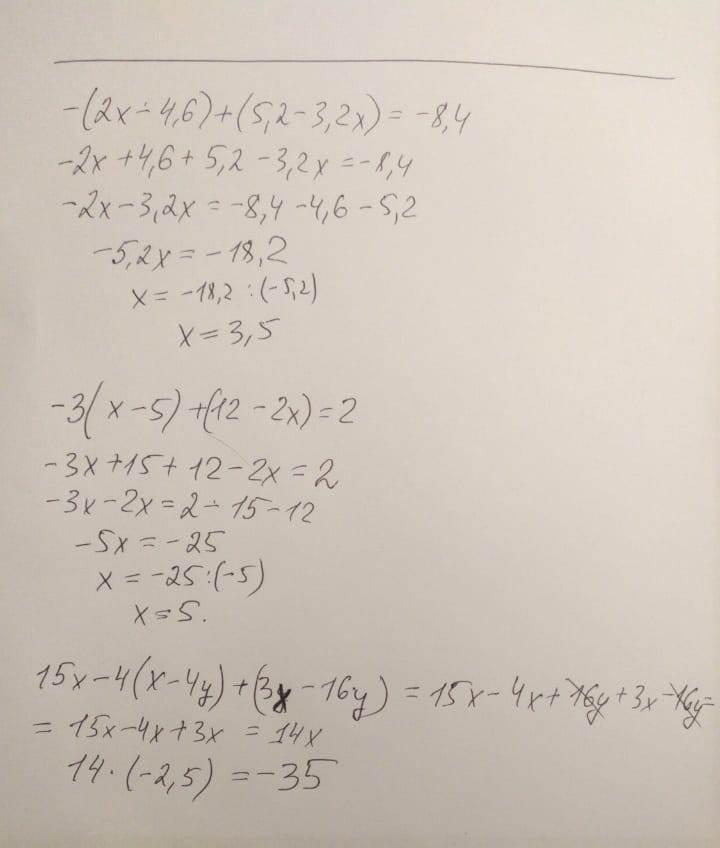 -(2x - 4,6)+(5,2-3,2x) = -8,4
-2x +4,6+ 5,2 -3,2x =-8,4
-2x-3,2x = -8,4 -4,6 -5,2
-5,2x = -18,2
x= -18,2 :(-5,2)
x=3,5
-3(x-5)+(12 -2x)=2
-3x+15+ 12-2x=2
-3x-2x=2- 15-12
-5x = -25
x = -25:(-5)
x=5.
15x-4(x-4y)+(3x-16y) = 15x-4x+16y+3x-16y=
= 15x-4x+3x = 14x
14·(-2,5) =-35